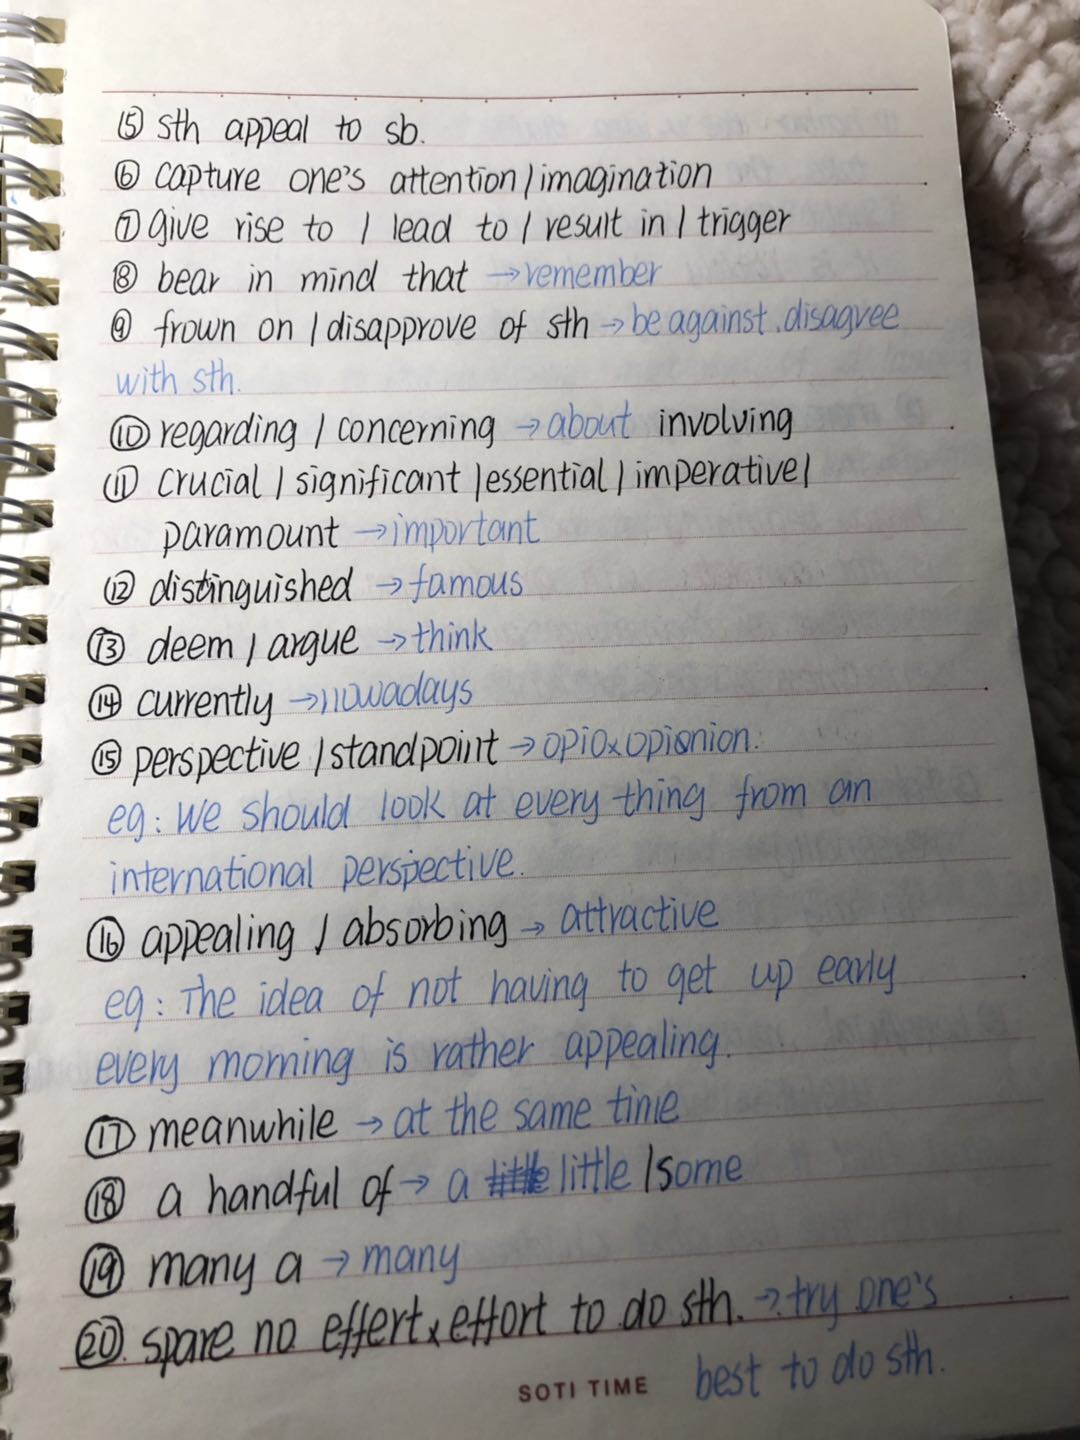 ⑤ sth appeal to sb.
⑥ capture one's attention / imagination
⑦ give rise to / lead to / result in / trigger
⑧ bear in mind that → remember
⑨ frown on / disapprove of sth → be against. disagree
with sth.
⑩ regarding / concerning → about involving
⑪ crucial / significant / essential / imperative /
paramount → important
⑫ distinguished → famous
⑬ deem / argue → think
⑭ currently → nowadays
⑮ perspective / standpoint → opio× opionion.
eg: We should look at every thing from an
international perspective.
⑯ appealing / absorbing → attractive
eg: The idea of not having to get up early
every morning is rather appealing.
⑰ meanwhile → at the same time
⑱ a handful of → a little / some
⑲ many a → many
⑳ spare no effert× effort to do sth. → try one's
best to do sth.
SOTI TIME